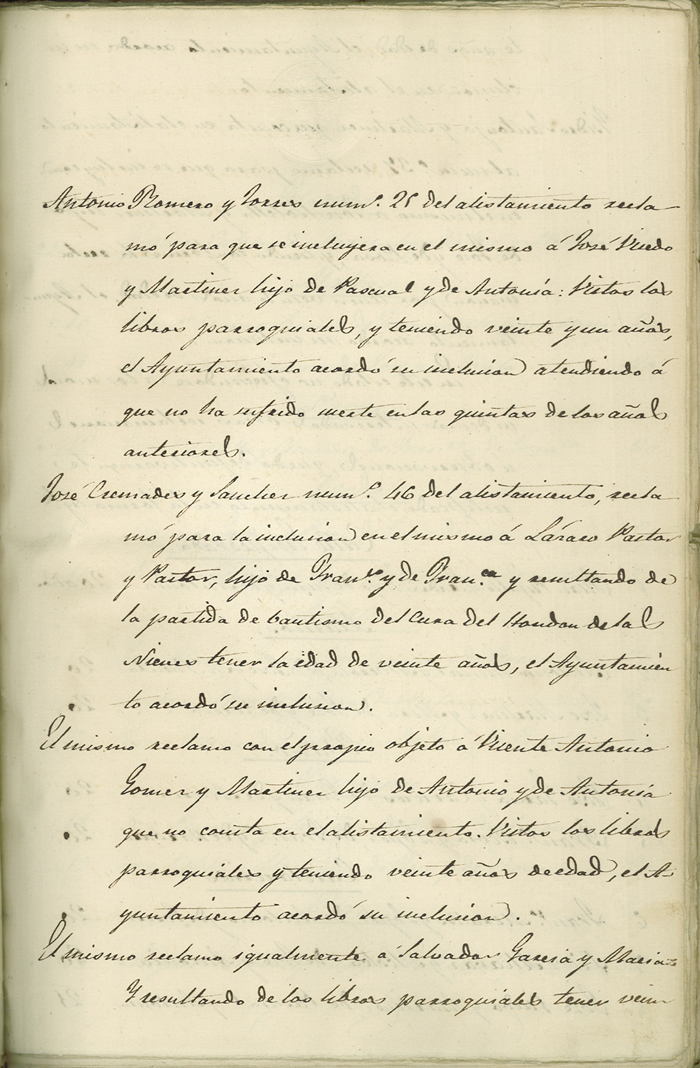 Antonio Romero y Torres num.º 25 del alistamiento recla-
mó para que se incluyera en el mismo á José Viedo
y Martinez hijo de Pascual y de Antonia: Vistos los
libros parroquiales, y teniendo veinte y un años,
el Ayuntamiento acordó su inclusion atendiendo á
que no ha sufrido suerte en las quintas de los años
anteriores.
José Cremades y Sanchez num.º 46 del alistamiento, recla-
mó para la inclusion en el mismo á Lázaro Pastor
y Pastor, hijo de Fran.co y de Fran.ca y resultando de
la partida de bautismo del Cura del Hondon de las
Nieves tener la edad de veinte años, el Ayuntamien
to acordó su inclusion.
El mismo reclamo con el propio objeto á Vicente Antonio
Gomez y Martinez hijo de Antonio y de Antonia
que no consta en el alistamiento. Vistos los libros
parroquiales y teniendo veinte años de edad, el A-
yuntamiento acordó su inclusion.
El mismo reclamo igualmente á Salvador Garcia y
Y resultando de los libros parroquiales tener vein